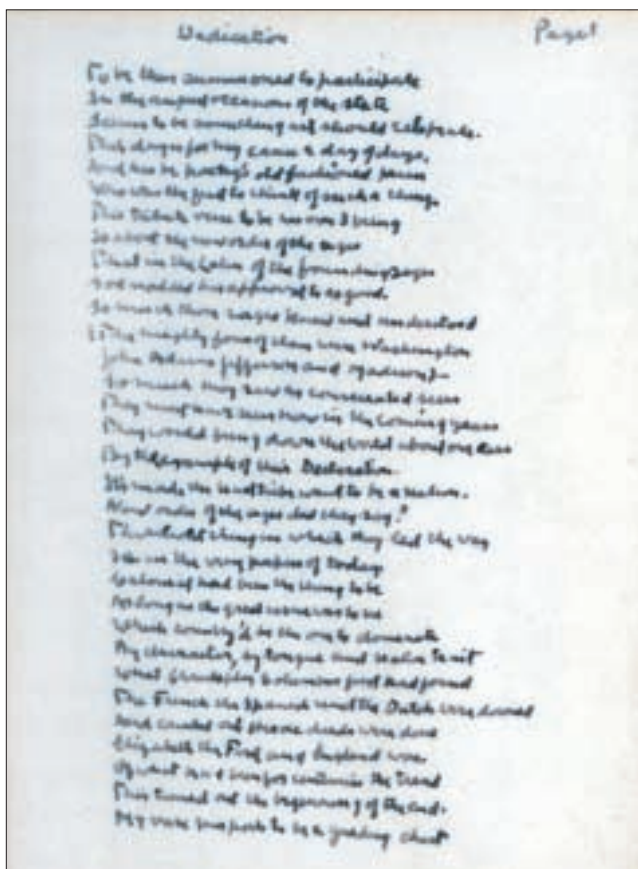 Dedication
Page 1
To be thus summoned to participate
In the august occasions of the state
Seems to be something art should celebrate.
This day is for my cause a day of days,
And his be poetry's old fashioned praise
Who was the first to think of such a thing.
This tribute verse to be his own I bring
Is about the new order of the ages
That in the Latin of the founding sages
approval to as good.
So much those sages knew and understood
(The mighty four of them were Washington
John Adams Jefferson and Madison)–
So much they saw as consecrated seers
They must have seen how in the coming years
They would bring down the world about our ears
By the example of their Declaration.
It made the least tribe want to be a nation.
New order of the ages did they say?
The thing in which they led the way
in the very papers of today
the thing to be
As long as the great issue was to be
What country'd be the one to dominate
By character, by tongue and
What
The French the Spanish and the Dutch were downed
And counted out deeds were done
Elizabeth the First and England won.
the trend
This turned out the beginning of the end.
My verse purports to be a guiding chart